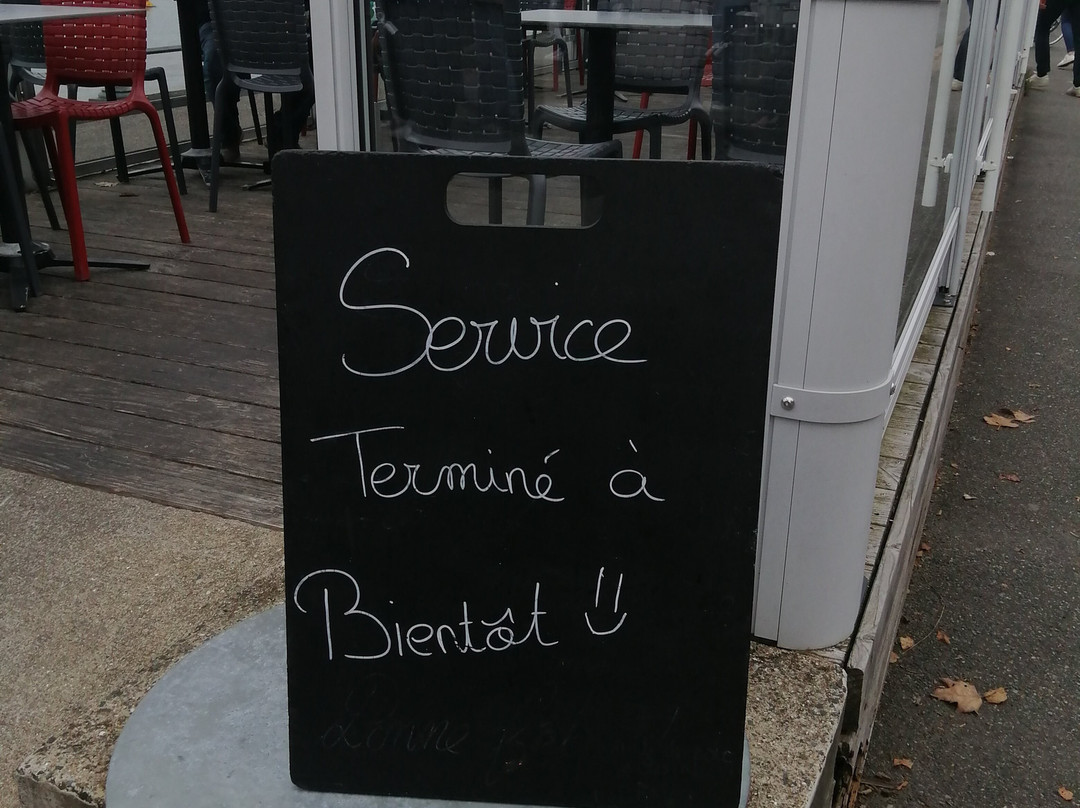 Service
Terminé à
Bientôt